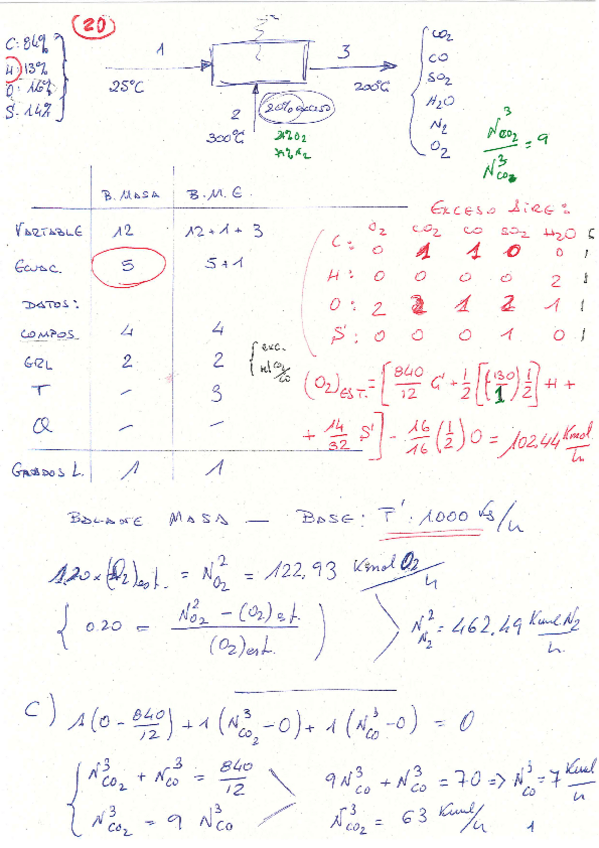 20
C: 84%
H: 13%
O: 1.6%
S: 1.4%
1
25°C
2
300°C
20% exceso
21% O2
79% N2
3
200°C
CO2
CO
SO2
H2O
N2
O2
N³CO2 / N³CO = 9
B. MASA B.M.E.
VARIABLE 12 12+1+3
ECUAC. 5 5+1
DATOS:
COMPOS. 4 4
GRL 2 2
T - 3
Q - -
GRADOS L. 1 1
{ exc. rel CO2/CO
EXCESO AIRE:
O2 CO2 CO SO2 H2O
C: 0 1 1 0 0
H: 0 0 0 0 2
O: 2 2 1 2 1
S: 0 0 0 1 0
(O2)EST. = [840/12 C + 1/2 [(130/1) 1/2] H +
+ 14/32 S] - 16/16 (1/2) O = 102.44 Kmol/h
BALANCE MASA — BASE: F¹: 1000 Kg/h
1.20 x (O2)est. = N²O2 = 122.93 Kmol O2/h
{ 0.20 = N²O2 - (O2)est. / (O2)est. ) N²N2 = 462.49 Kmol N2/h
C) 1(0 - 840/12) + 1(N³CO2 - 0) + 1(N³CO - 0) = 0
{ N³CO2 + N³CO = 840/12 9N³CO + N³CO = 70 => N³CO = 7 Kmol/h
N³CO2 = 9 N³CO N³CO2 = 63 Kmol/h
1